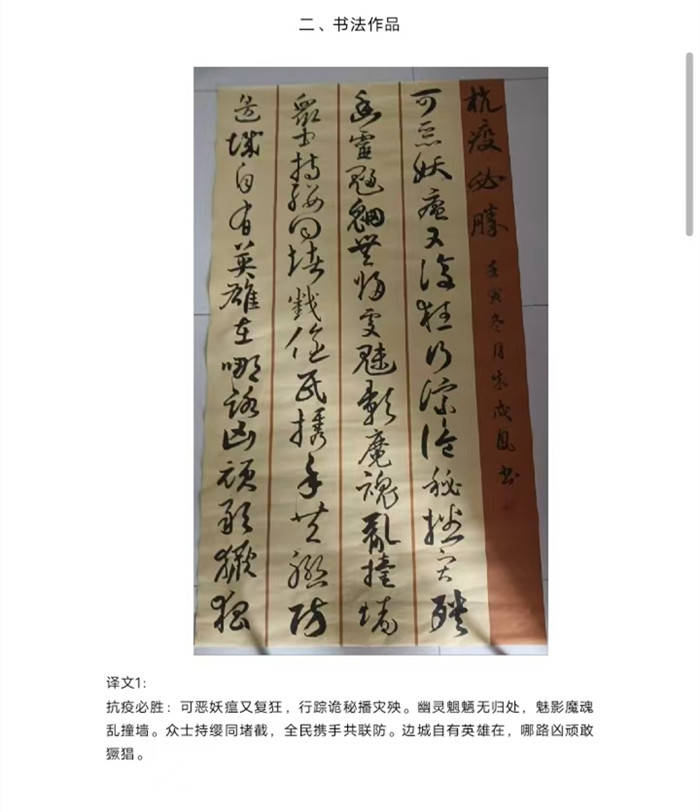 二、书法作品
抗疫必勝 壬寅冬月朱成凤书
可恶妖瘟又復狂行踪诡秘播灾殃
幽靈魍魎無归处魅影魔魂亂撞墙
眾士持缨同堵截全民携手共联防
边城自有英雄在哪路凶顽敢獗猖
译文1:
抗疫必胜：可恶妖瘟又复狂，行踪诡秘播灾殃。幽灵魍魉无归处，魅影魔魂
乱撞墙。众士持缨同堵截，全民携手共联防。边城自有英雄在，哪路凶顽敢
獗猖。